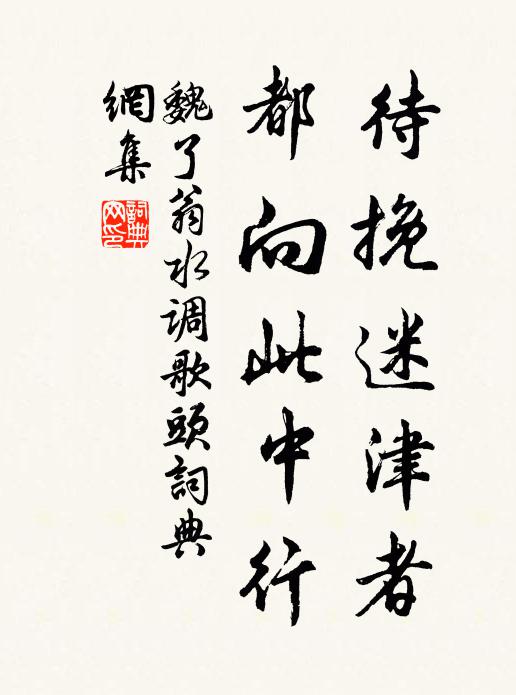 待挽迷津者
都向此中行
魏了翁水调歌頭詞典
網集
詞典
网印